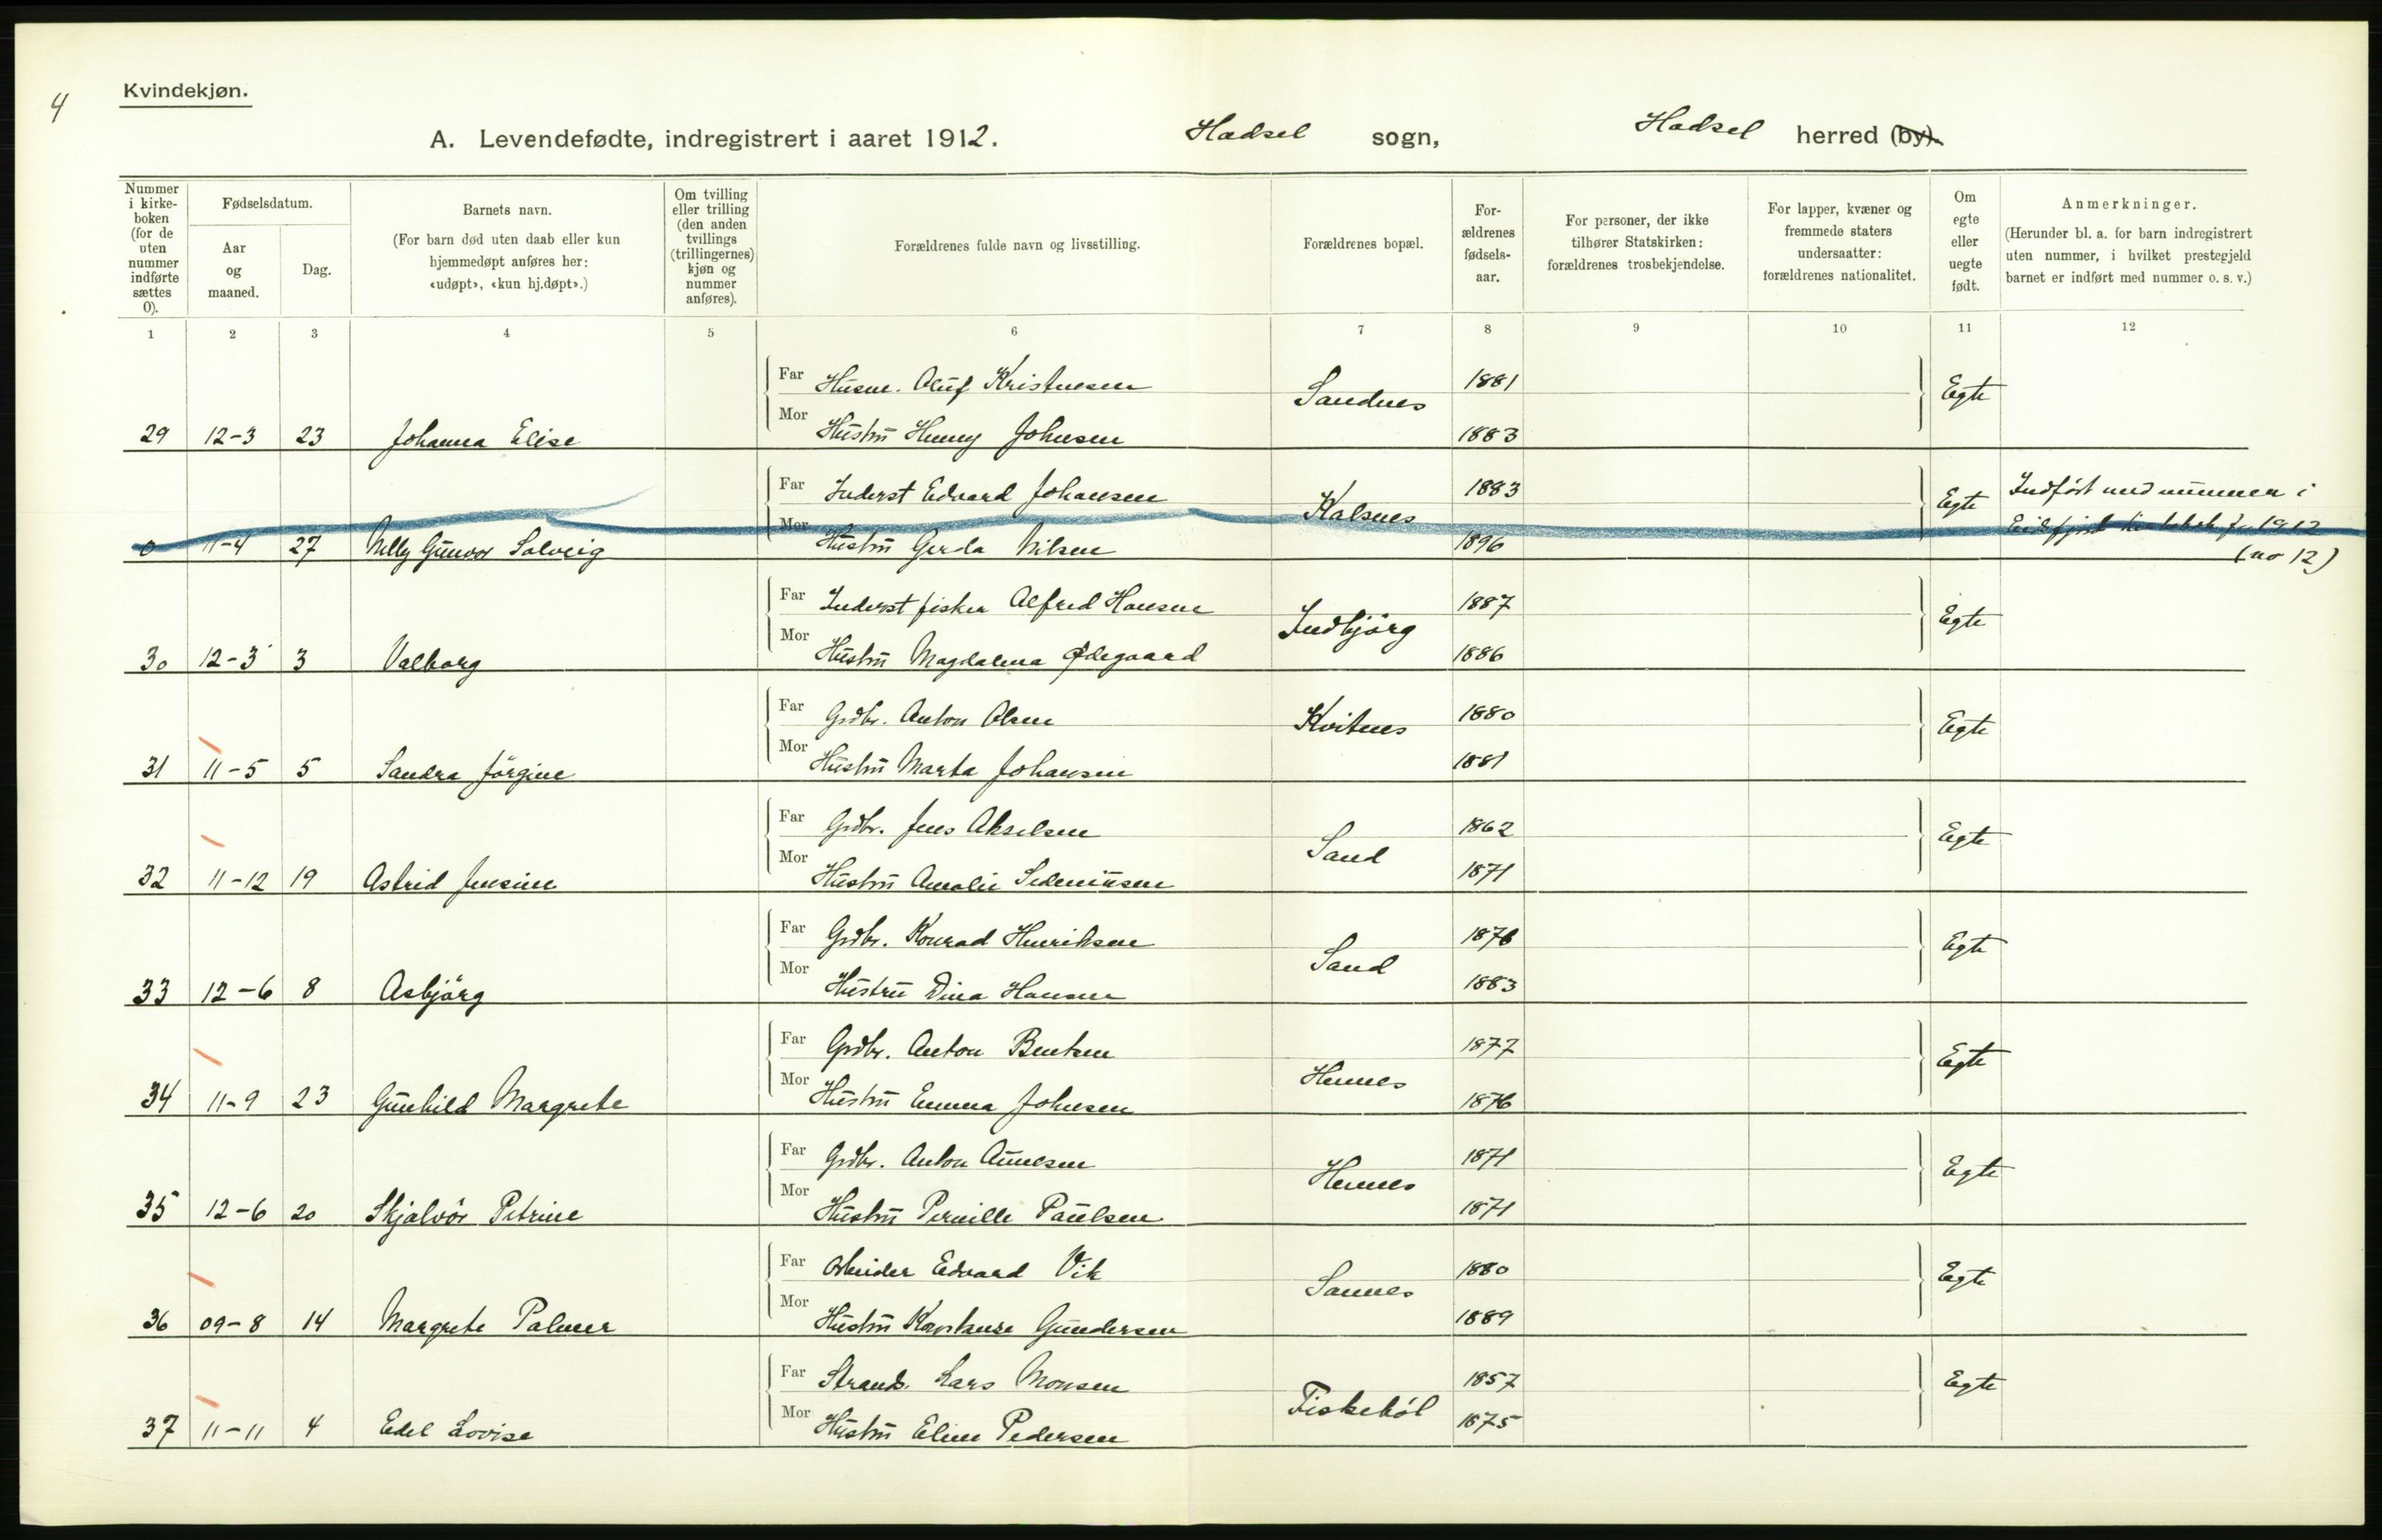 4
Kvindekjøn.
A. Levendefødte, indregistrert i aaret 1912. Hadsel sogn, Hadsel herred (by).
Nummer i kirke-boken (for de uten nummer indførte sættes 0).
Fødselsdatum.
Aar og maaned.
Dag.
Barnets navn.
(For barn død uten daab eller kun hjemmedøpt anføres her: «udøpt», «kun hj.døpt».)
Om tvilling eller trilling (den anden tvillings (trillingernes) kjøn og nummer anføres).
Forældrenes fulde navn og livsstilling.
Forældrenes bopæl.
For-ældrenes fødsels-aar.
For personer, der ikke tilhører Statskirken: forældrenes trosbekjendelse.
For lapper, kvæner og fremmede staters undersaatter: forældrenes nationalitet.
Om egte eller uegte født.
Anmerkninger.
(Herunder bl. a. for barn indregistrert uten nummer, i hvilket prestegjeld barnet er indført med nummer o. s. v.)
1 2 3 4 5 6 7 8 9 10 11 12
Far Husm. Oluf Kristnesen Sandnes 1881 Egte
29 12-3 23 Johanna Elise Mor Hustru Henny Johnsen 1883
Far Inderst Edvard Johansen Kalsnes 1883 Egte Indført med nummer i
0 11-4 27 Nelly Gunvor Solveig Mor Hustru Gerda Nilsen 1896 Eidsfjord kirkebok for 1912
(no 12)
Far Inderst fisker Alfred Hansen Indbjörg 1887 Egte
30 12-3 3 Valborg Mor Hustru Magdalena Ødegaard 1886
Far Grdbr. Anton Olsen Kvitnes 1880 Egte
31 11-5 5 Sandra Jörgine Mor Hustru Marta Johansen 1881
Far Grdbr. Jens Akselsen Sand 1862 Egte
32 11-12 19 Astrid Jensine Mor Hustru Amalie Sedeniusen 1871
Far Grdbr. Konrad Henriksen Sand 1876 Egte
33 12-6 8 Asbjörg Mor Hustru Dina Hansen 1883
Far Grdbr. Anton Bentsen Hennes 1877 Egte
34 11-9 23 Gunhild Margrete Mor Hustru Emma Johnsen 1876
Far Grdbr. Anton Aunesen Hennes 1871 Egte
35 12-6 20 Skjalvör Petrine Mor Hustru Pernille Paulsen 1871
Far Arbeider Edvard Vik Sannes 1880 Egte
36 09-8 14 Margrete Palmer Mor Hustru Konstanse Gundersen 1889
Far Strands. Lars Monsen Fiskeböl 1857 Egte
37 11-11 4 Edel Lovise Mor Hustru Eline Pedersen 1875